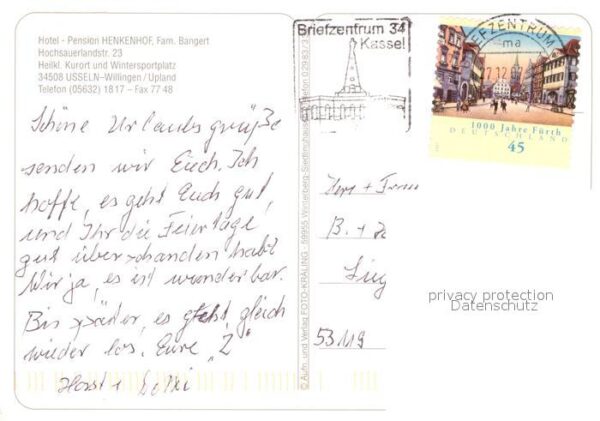 Hotel - Pension HENKENHOF, Fam. Bangert
Hochsauerlandstr. 23
Heilkl. Kurort und Wintersportplatz
34508 USSELN–Willingen/Upland
Telefon (05632) 1817 – Fax 77 48
Schöne Urlaubsgrüße
senden wir Euch. Ich
hoffe, es geht Euch gut,
und Ihr die Feiertage
gut überstanden habt
Wir ja, es ist wunderbar.
Bis später, es geht gleich
wieder los. Eure „2"
Horst +
© Aufn. und Verlag FOTO-KRÄLING · 59955 Winterberg-Siedlinghausen · Telefon 02983/
Briefzentrum 34
Kassel
EFZENTRUM
ma
27.12.07
1000 Jahre Fürth
DEUTSCHLAND
45
Herr +
B. +
53119
privacy protection
Datenschutz